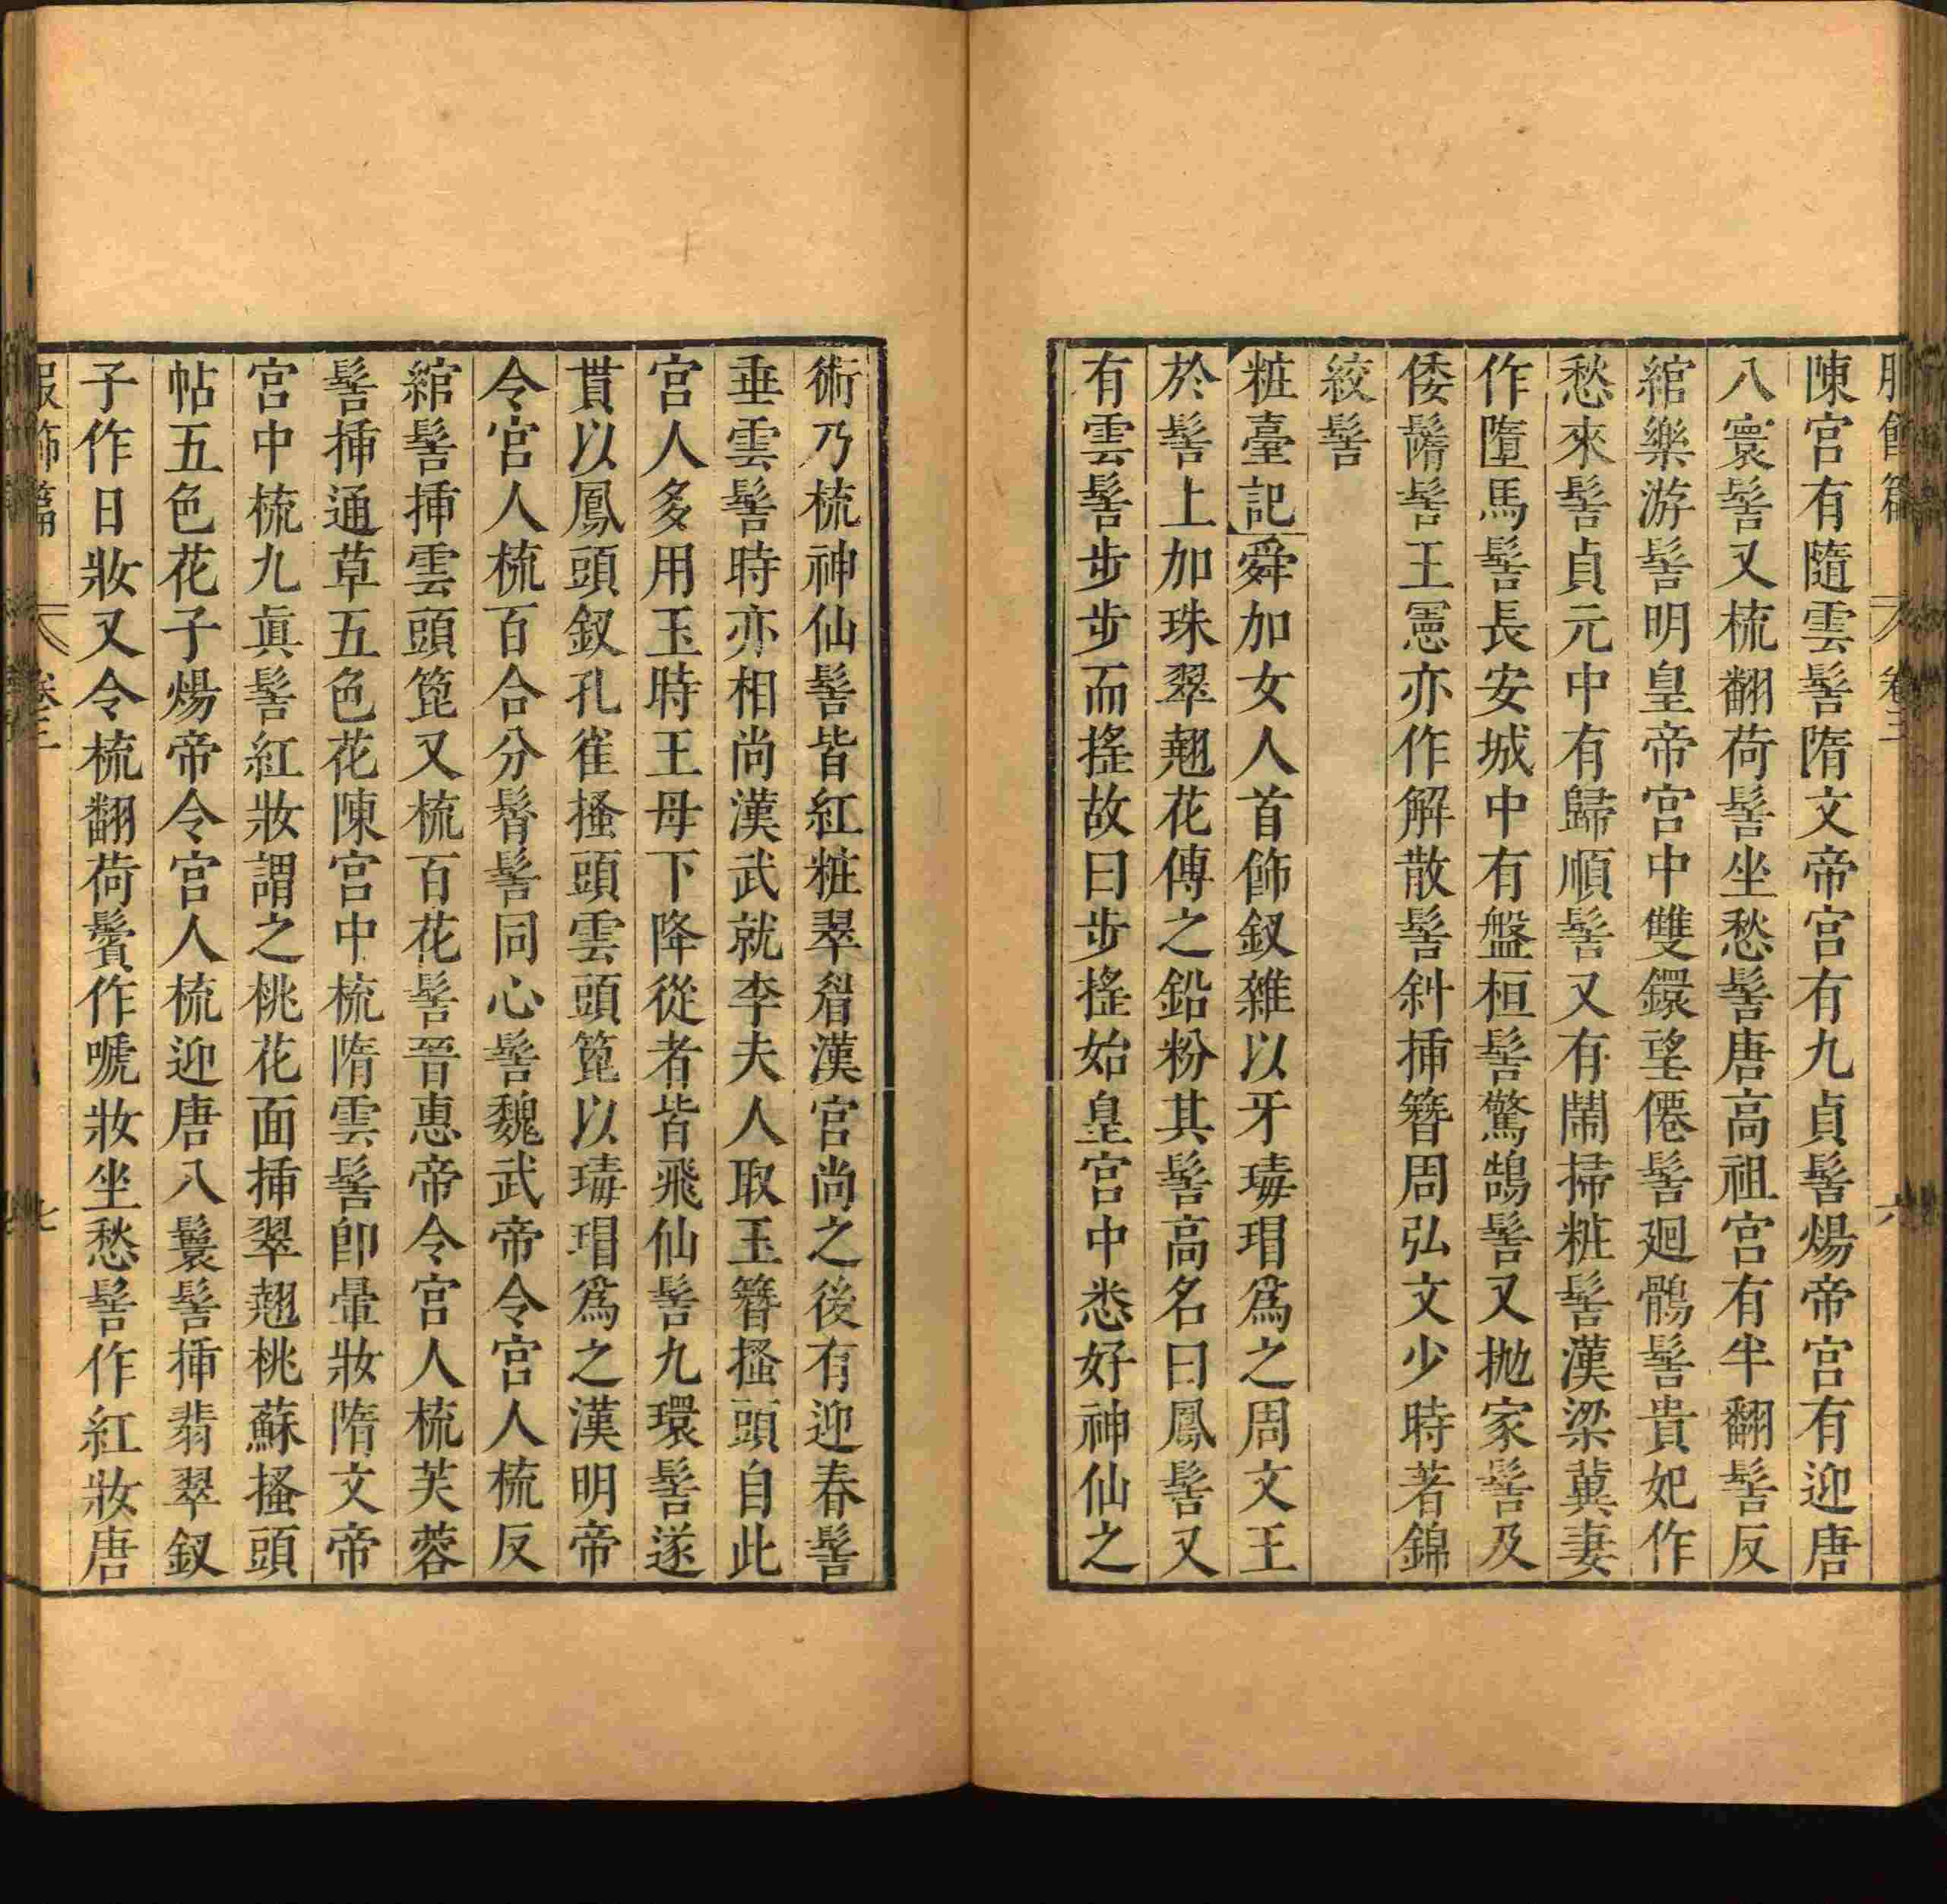 服飾篇 卷三 六
陳宮有隨雲髻隋文帝宮有九貞髻煬帝宮有迎唐
八寰髻又梳翻荷髻坐愁髻唐高祖宮有半翻髻反
綰樂游髻明皇帝宮中雙鐶望僊髻廻鶻髻貴妃作
愁來髻貞元中有歸順髻又有鬧掃粧髻漢梁冀妻
作墮馬髻長安城中有盤桓髻驚鵠髻又抛家髻及
倭鬌髻王憲亦作解散髻斜揷簪周弘文少時著錦
絞髻
粧臺記舜加女人首飾釵雜以牙瑇瑁爲之周文王
於髻上加珠翠翹花傳之鉛粉其髻高名曰鳳髻又
有雲髻步步而搖故曰步搖始皇宮中悉好神仙之
術乃梳神仙髻皆紅粧翠眉漢宮尚之後有迎春髻
垂雲髻時亦相尚漢武就李夫人取玉簪搔頭自此
宮人多用玉時王母下降從者皆飛仙髻九環髻遂
貫以鳳頭釵孔雀搔頭雲頭篦以瑇瑁爲之漢明帝
令宮人梳百合分髾髻同心髻魏武帝令宮人梳反
綰髻揷雲頭篦又梳百花髻晉惠帝令宮人梳芙蓉
髻揷通草五色花陳宮中梳隋雲髻卽暈妝隋文帝
宮中梳九眞髻紅妝謂之桃花面揷翠翹桃蘇搔頭
帖五色花子煬帝令宮人梳迎唐八鬟髻揷翡翠釵
子作日妝又令梳翻荷鬢作嗁妝坐愁髻作紅妝唐
服飾篇 卷三 七